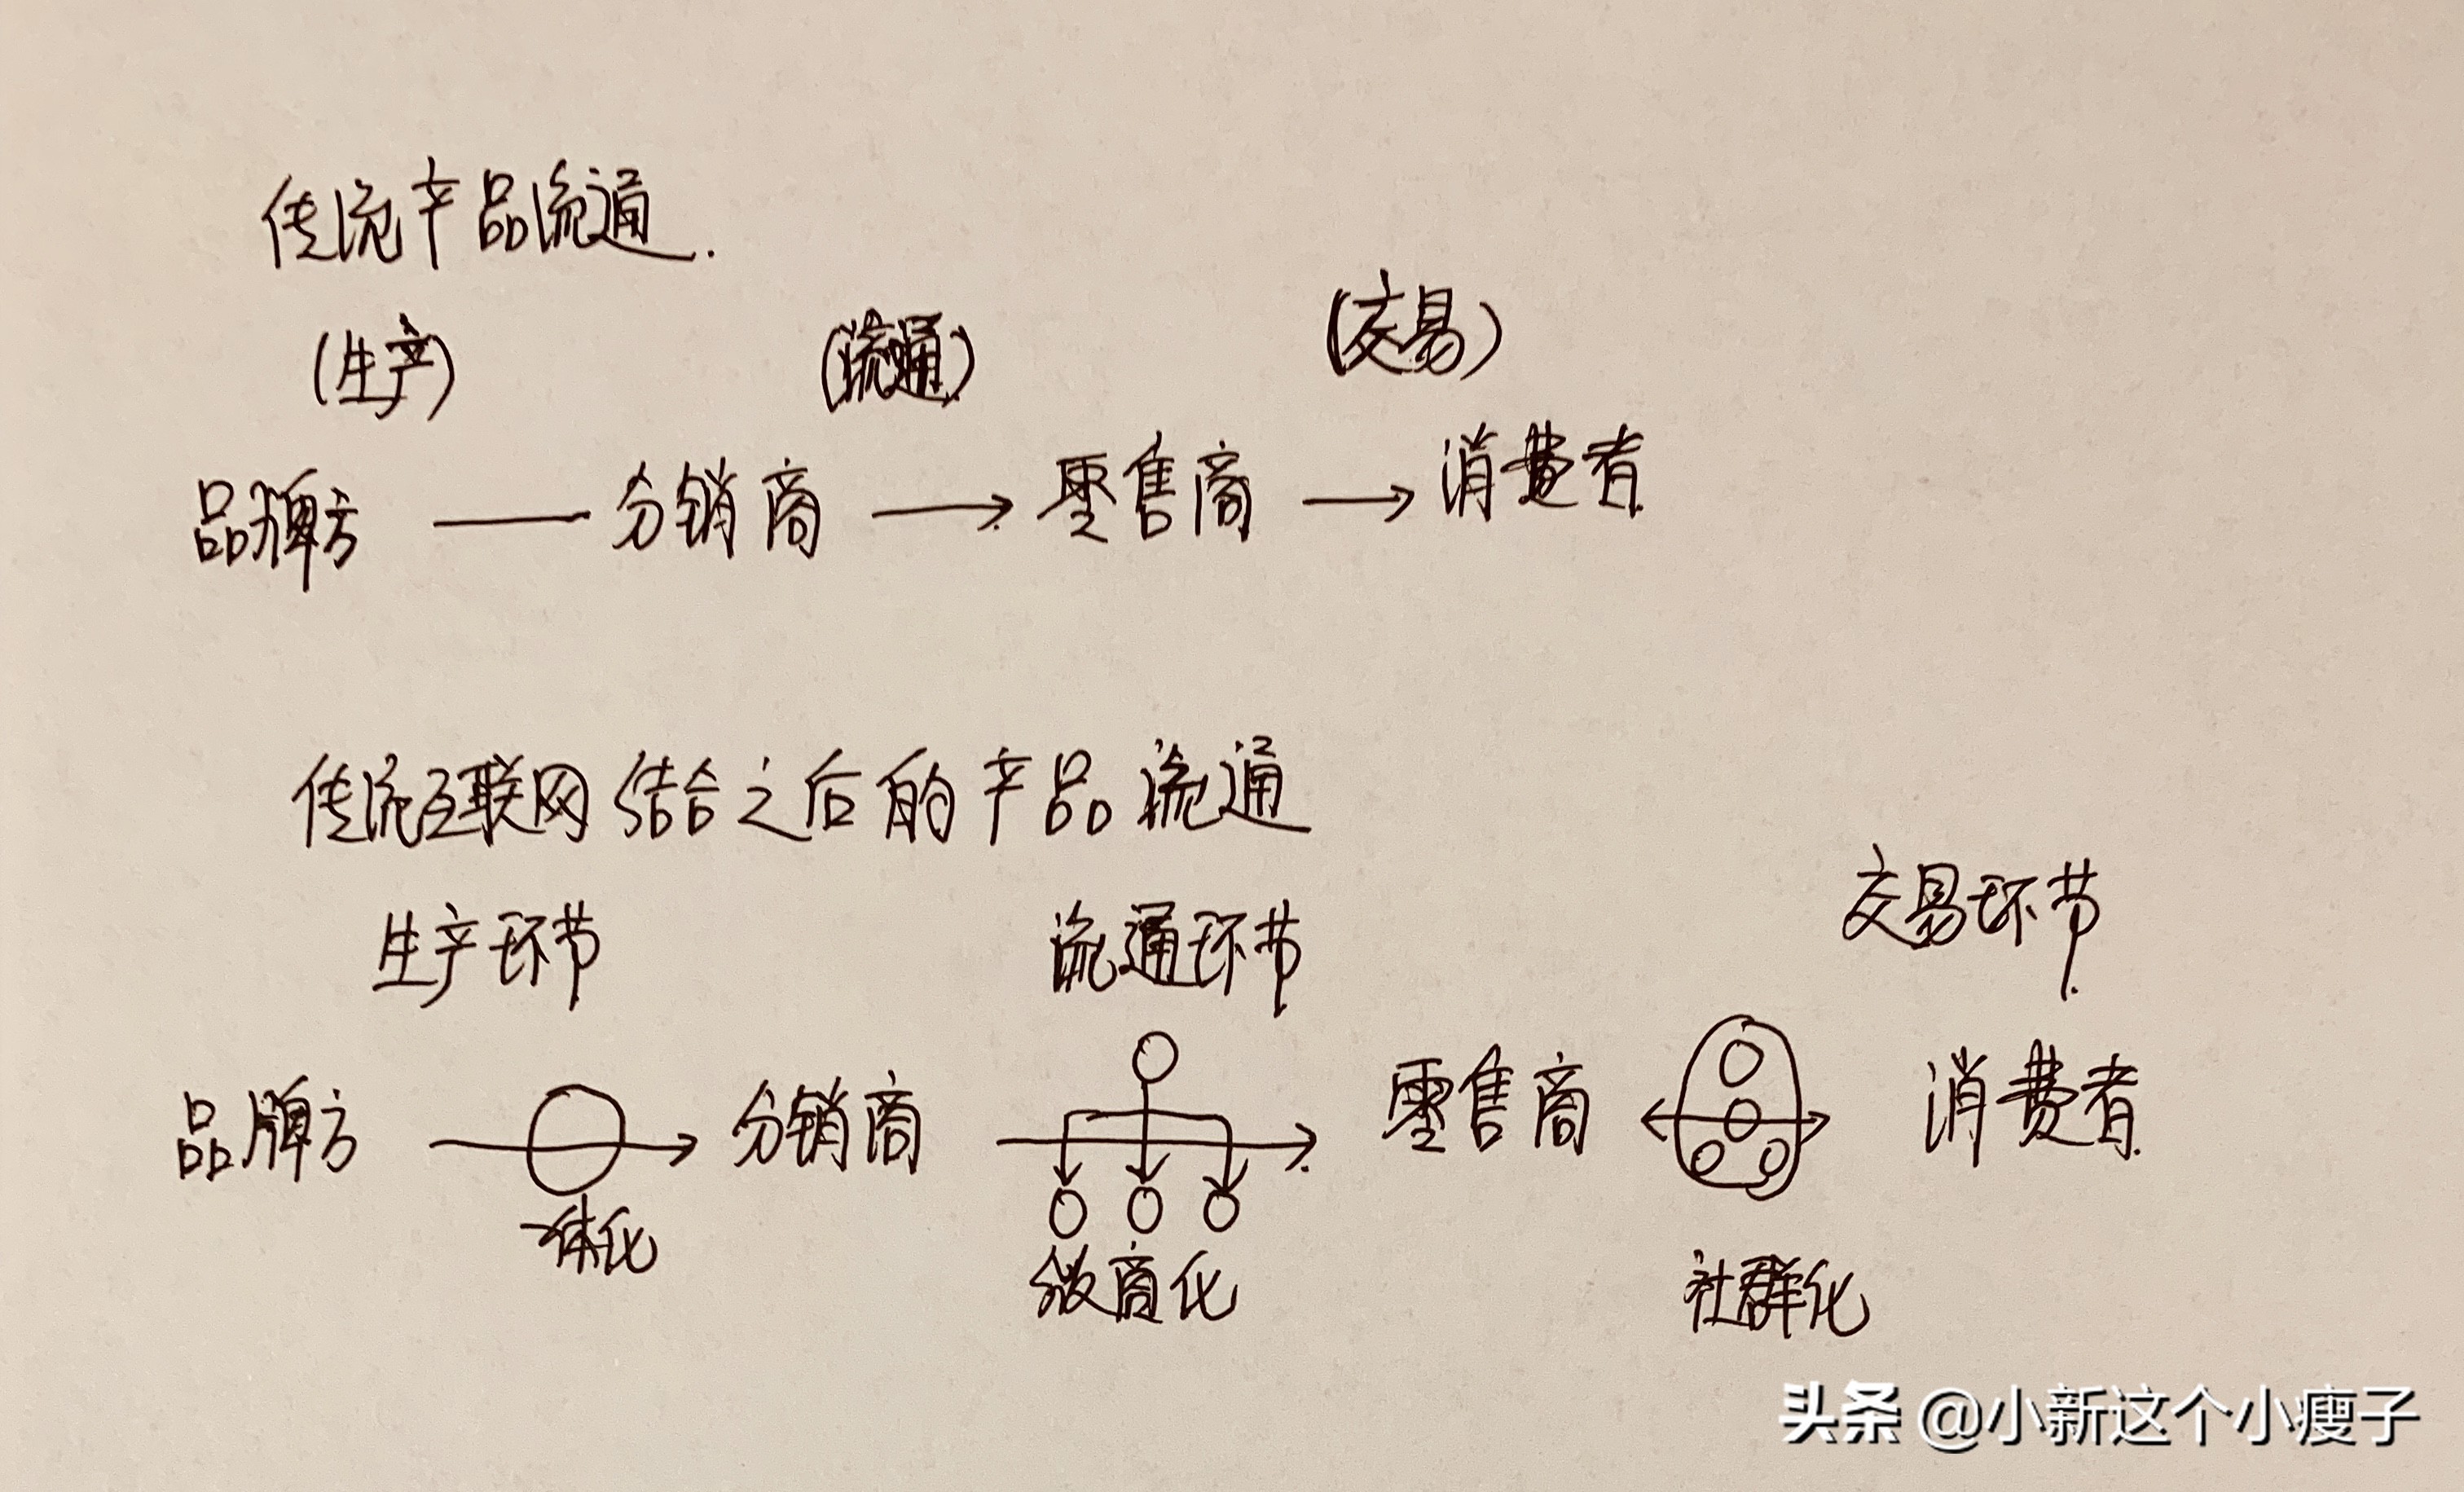 传统产品流通.
(生产) (流通) (交易)
品牌方 —— 分销商 → 零售商 → 消费者
传统互联网结合之后的产品流通
生产环节 流通环节 交易环节
品牌方 分销商 零售商 消费者
一体化 微商化 社群化
头条 @小新这个小瘦子